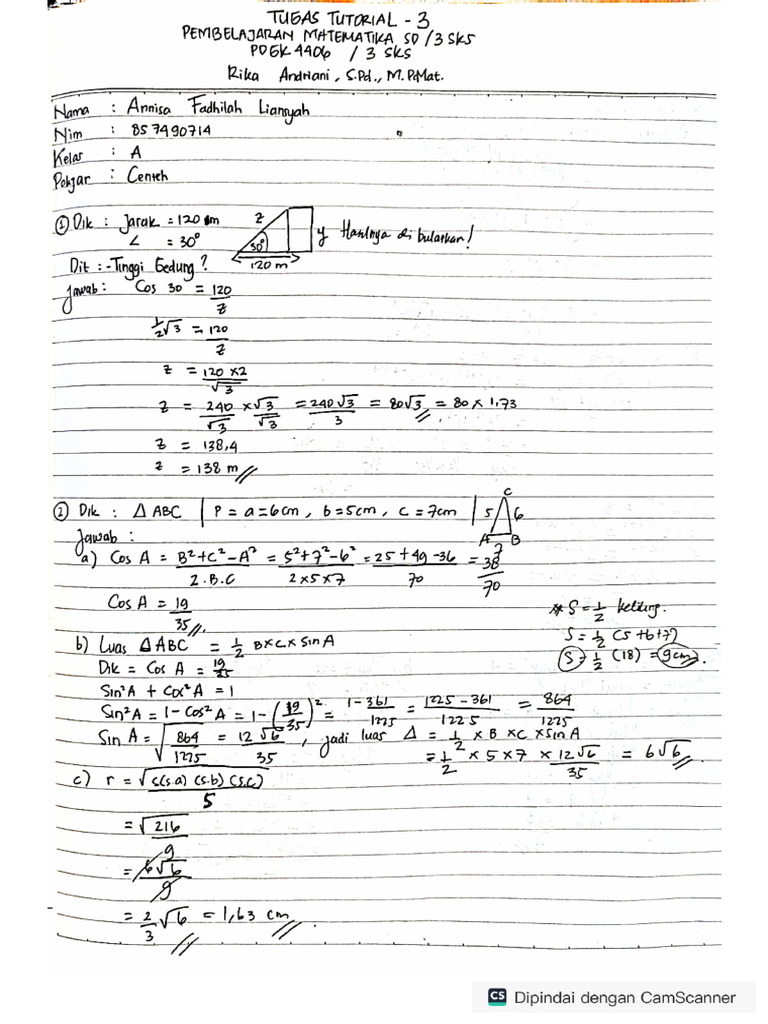 TUGAS TUTORIAL - 3
PEMBELAJARAN MATEMATIKA SD / 3 SKS
PDGK 4406 / 3 SKS
Rika Andriani, S.Pd., M.P.Mat.
Nama : Annisa Fadhilah Liansyah
Nim : 857490714
Kelas : A
Pokjar : Centeh
① Dik : Jarak = 120 m
∠ = 30°
z
30°
120 m
y
Hasilnya di bulatkan!
Dit : - Tinggi Gedung?
Jawab : Cos 30 = 120/z
1/2√3 = 120/z
z = 120 x 2/√3
z = 240/√3 x √3/√3 = 240√3/3 = 80√3 = 80 x 1,73
z = 138,4
z = 138 m
② Dik : △ ABC | P = a = 6 cm, b = 5 cm, c = 7 cm | 5 C 6 A B 7
Jawab :
a) Cos A = B²+C²-A²/2.B.C = 5²+7²-6²/2x5x7 = 25+49-36/70 = 38/70
Cos A = 19/35
* S = 1/2 keliling.
S = 1/2 (5+6+7)
S = 1/2 (18) = 9 cm.
b) Luas △ABC = 1/2 B x C x Sin A
Dik = Cos A = 19/25
Sin²A + Cos²A = 1
Sin²A = 1 - Cos²A = 1 - (19/35)² = 1-361/1225 = 1225-361/1225 = 864/1225
Sin A = √864/1225 = 12√6/35, jadi luas △ = 1/2 x B x C x Sin A
= 1/2 x 5 x 7 x 12√6/35 = 6√6
c) r = √s(s.a) (s.b) (s.c)/S
= √216/9
= 6√6/9
= 2/3 √6 = 1,63 cm
CS Dipindai dengan CamScanner